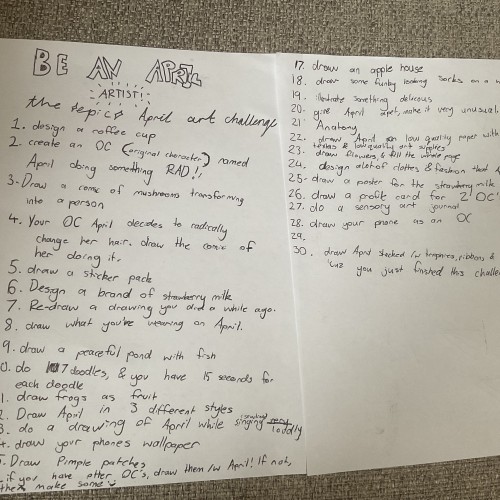 BE AN APRIL
ARTIST!
the epic April art challenge
1. design a coffee cup
2. create an OC (original character) named
April doing something RAD!!
3. Draw a comic of mushrooms transforming
into a person
4. Your OC April decides to radically
change her hair. draw the comic of
her doing it.
5. draw a sticker pack
6. Design a brand of strawberry milk
7. Re-draw a drawing you did a while ago.
8. draw what you're wearing on April.
9. draw a peaceful pond with fish
0. do 7 doodles, & you have 15 seconds for
each doodle
1. draw frogs as fruit
2. Draw April in 3 different styles
3. do a drawing of April while singing loudly
4. draw your phones wallpaper
5. Draw Pimple patches
if you have other OC's, draw them /w April! If not,
make some
17. draw an apple house
18. draw some funky looking socks on a
19. illustrate something delicous
20. give April a pet, make it very unusual.
21 Anatomy
22. draw April on low quality paper with
& low quality art supplies
23. draw flowers, & fill the whole page
24. design alot of clothes & fashion that
25. draw a poster for the strawberry milk
26. draw a profile card for 2 OC's
27. do a sensory art journal
28. draw your phone as an OC
29.
30. draw April stacked /w trophies, ribbons, &
'cuz you just finished this challe